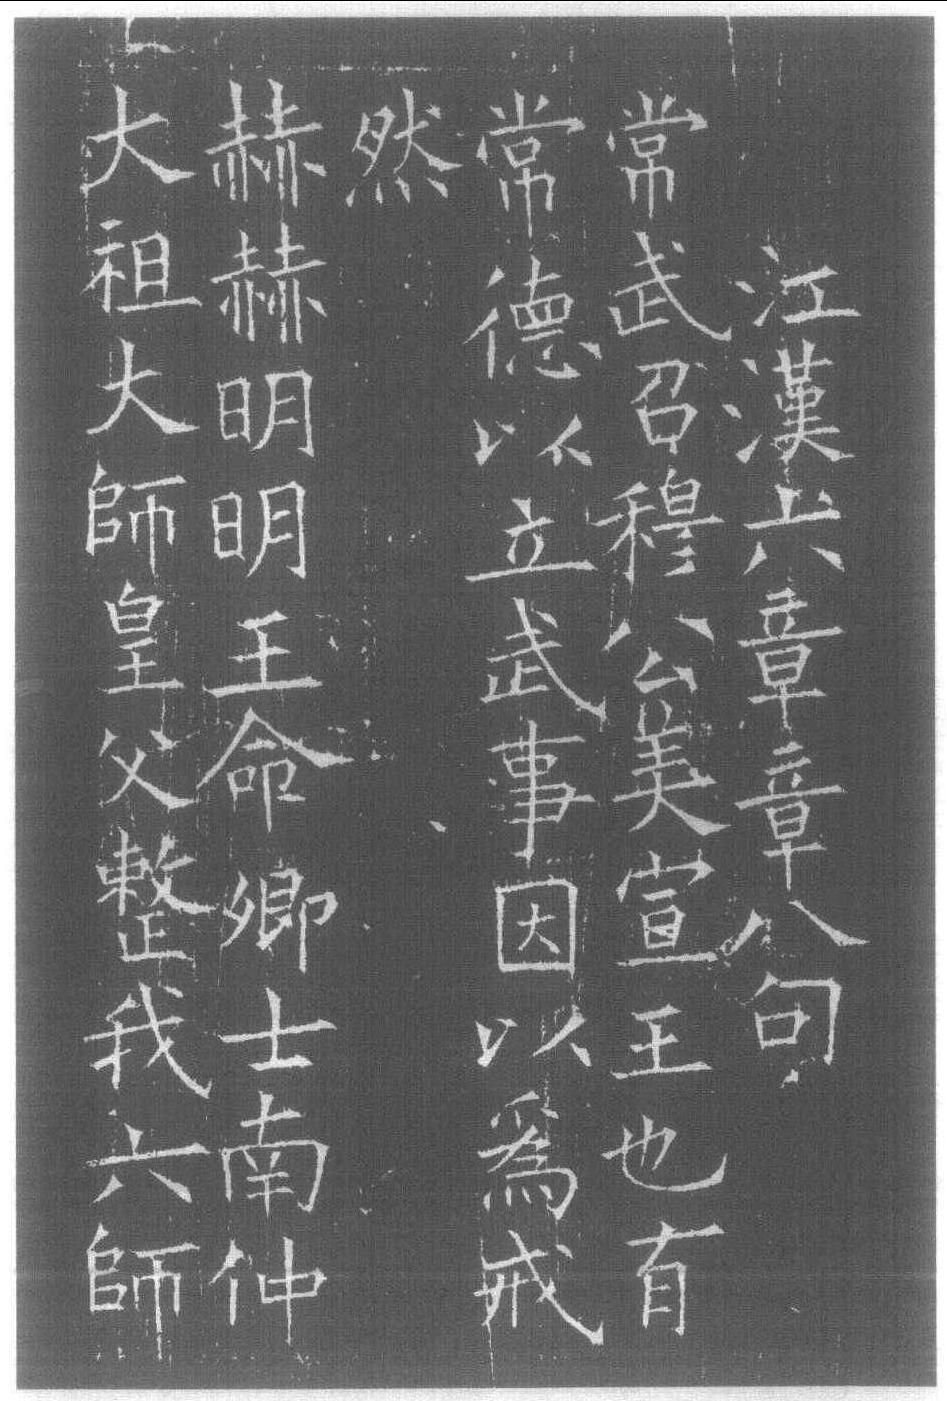 江漢六章章八句
常武召穆公美宣王也有
常德以立武事因以爲戒
然
赫赫明明王命卿士南仲
大祖大師皇父整我六師